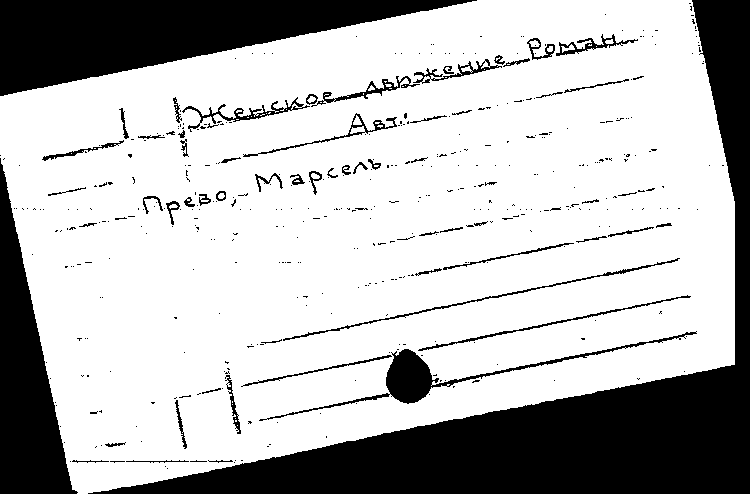 Женское движение Роман
Авт.:
Прево, Марсель.